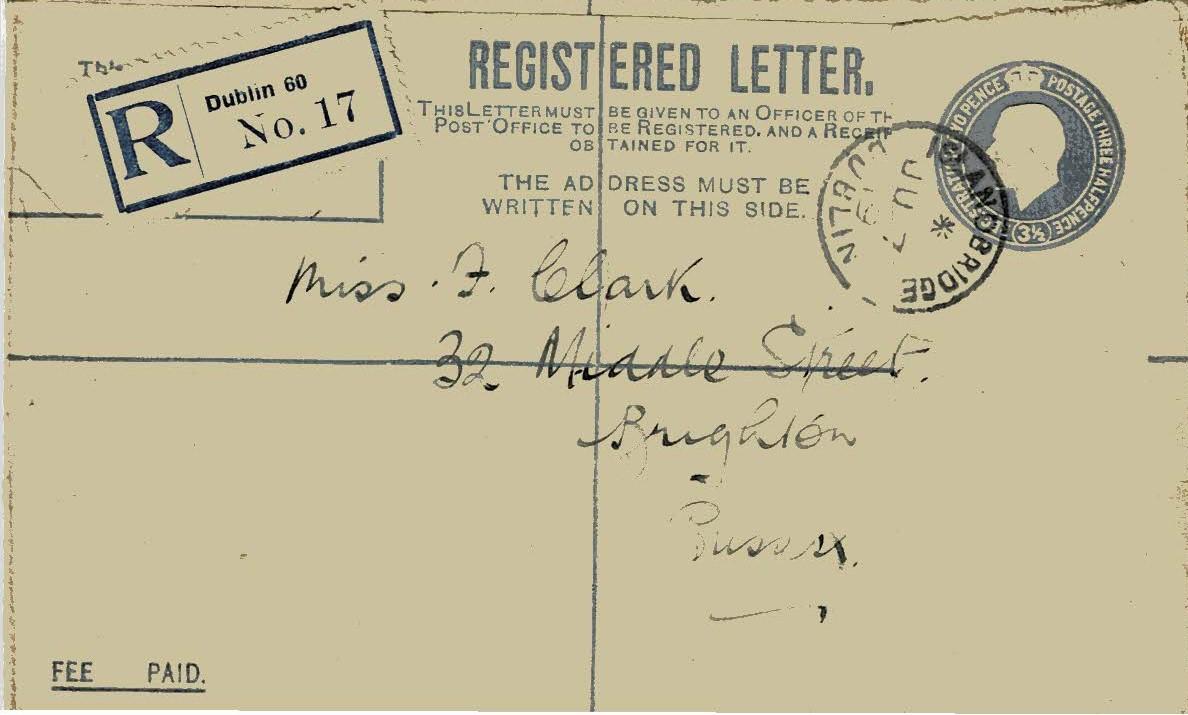 R Dublin 60
No. 17
REGISTERED LETTER.
THIS LETTER MUST BE GIVEN TO AN OFFICER OF TH
POST OFFICE TO BE REGISTERED, AND A RECEIP
OBTAINED FOR IT.
THE ADDRESS MUST BE
WRITTEN ON THIS SIDE.
POSTAGE THREE HALFPENCE
3½
ISLANDBRIDGE
DUBLIN
Miss. F. Clark.
32 Middle Street.
Brighton
Sussex.
FEE PAID.